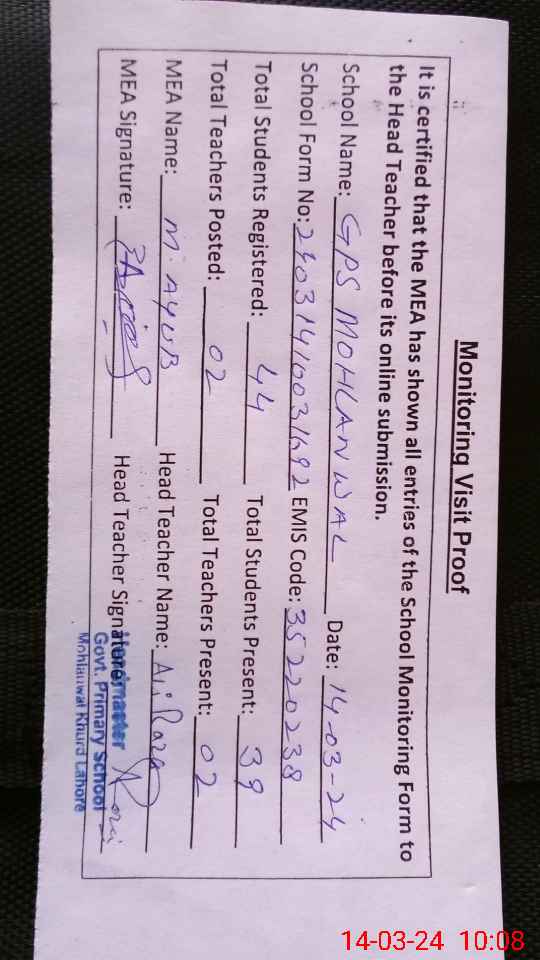 Monitoring Visit Proof
It is certified that the MEA has shown all entries of the School Monitoring Form to
the Head Teacher before its online submission.
School Name: GPS MOHLANWAL Date: 14-03-24
School Form No: 24031410031692 EMIS Code: 35220238
Total Students Registered: 44 Total Students Present: 39
Total Teachers Posted: 02 Total Teachers Present: 02
MEA Name: M. AYUB Head Teacher Name: Ali Raza
MEA Signature: Head Teacher Signature:
Headmaster
Govt. Primary School
Mohlanwal Khurd Lahore
14-03-24 10:08